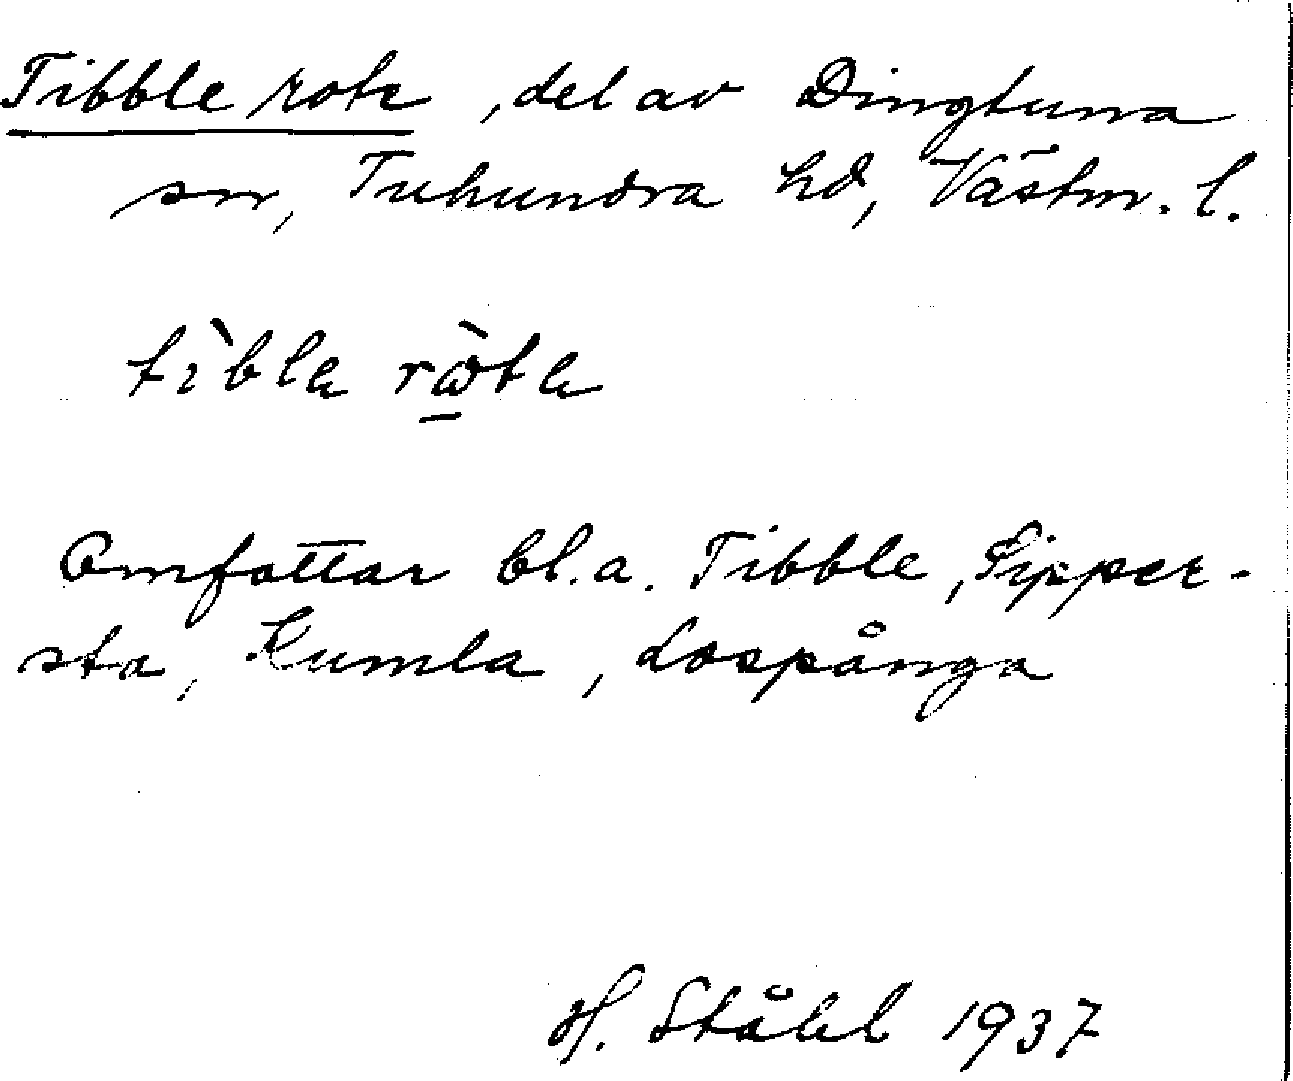 Tibble rote, del av Dingtuna
sn, Tuhundra hd, Västm. l.
tìbla rὼta
Omfattar bl.a. Tibble, Sipper-
sta, Kumla, Lospånga
H. Ståhl 1937